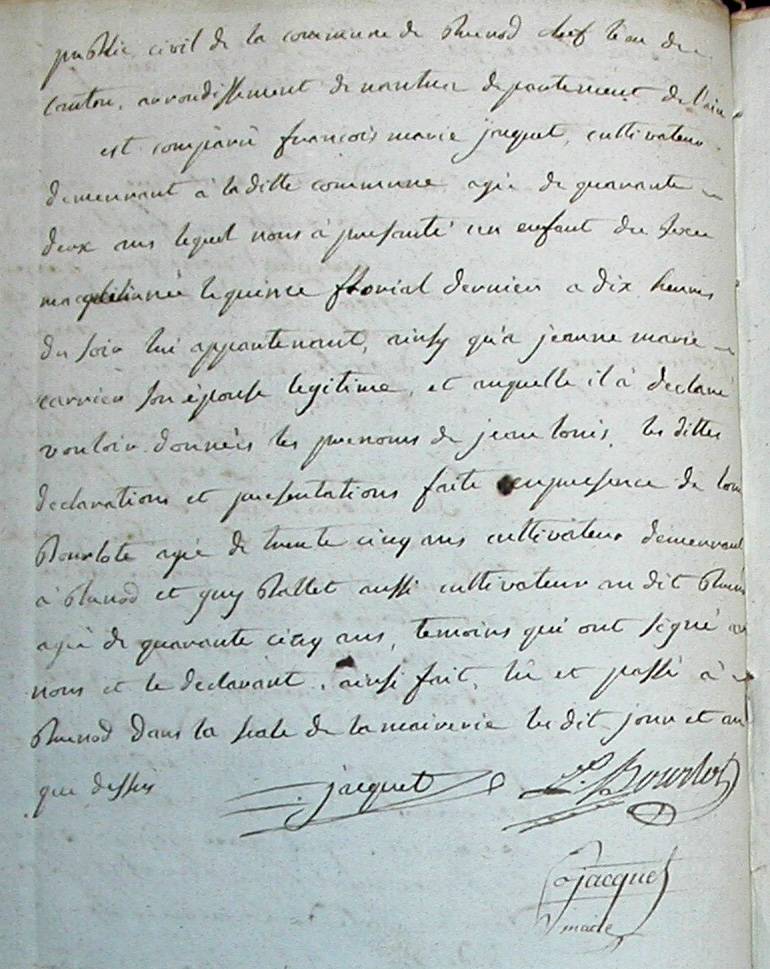 public civil de la commune de Brenod chef lieu de
canton, arrondissement de nantua departement de l'ain
est comparu françois marie jacquet, cultivateur
demeurant à la ditte commune agée de quarante
deux ans lequel nous à presanté un enfant du sexe
née le quinze floréal dernier a dix heures
du soir lui appartenant, ainsy qu'a jeanne marie
carrier son épouse legitime, et auquelle il à declaré
vouloir donnéer les prenoms de jean louis, les dittes
declarations et presentations faite en presence de louis
Bourlote agée de trente cinq ans cultivateur demeurant
à Brenod et guy Ballet aussi cultivateur au dit Brenod
agée de quarante cinq ans, temoins qui ont signé avec
nous et le declarant, ainsi fait, lu et passé à
Brenod dans la sale de la mairerie les dit jour et an
que dessus jacquet Ls. Bourlot
jacquet
maire